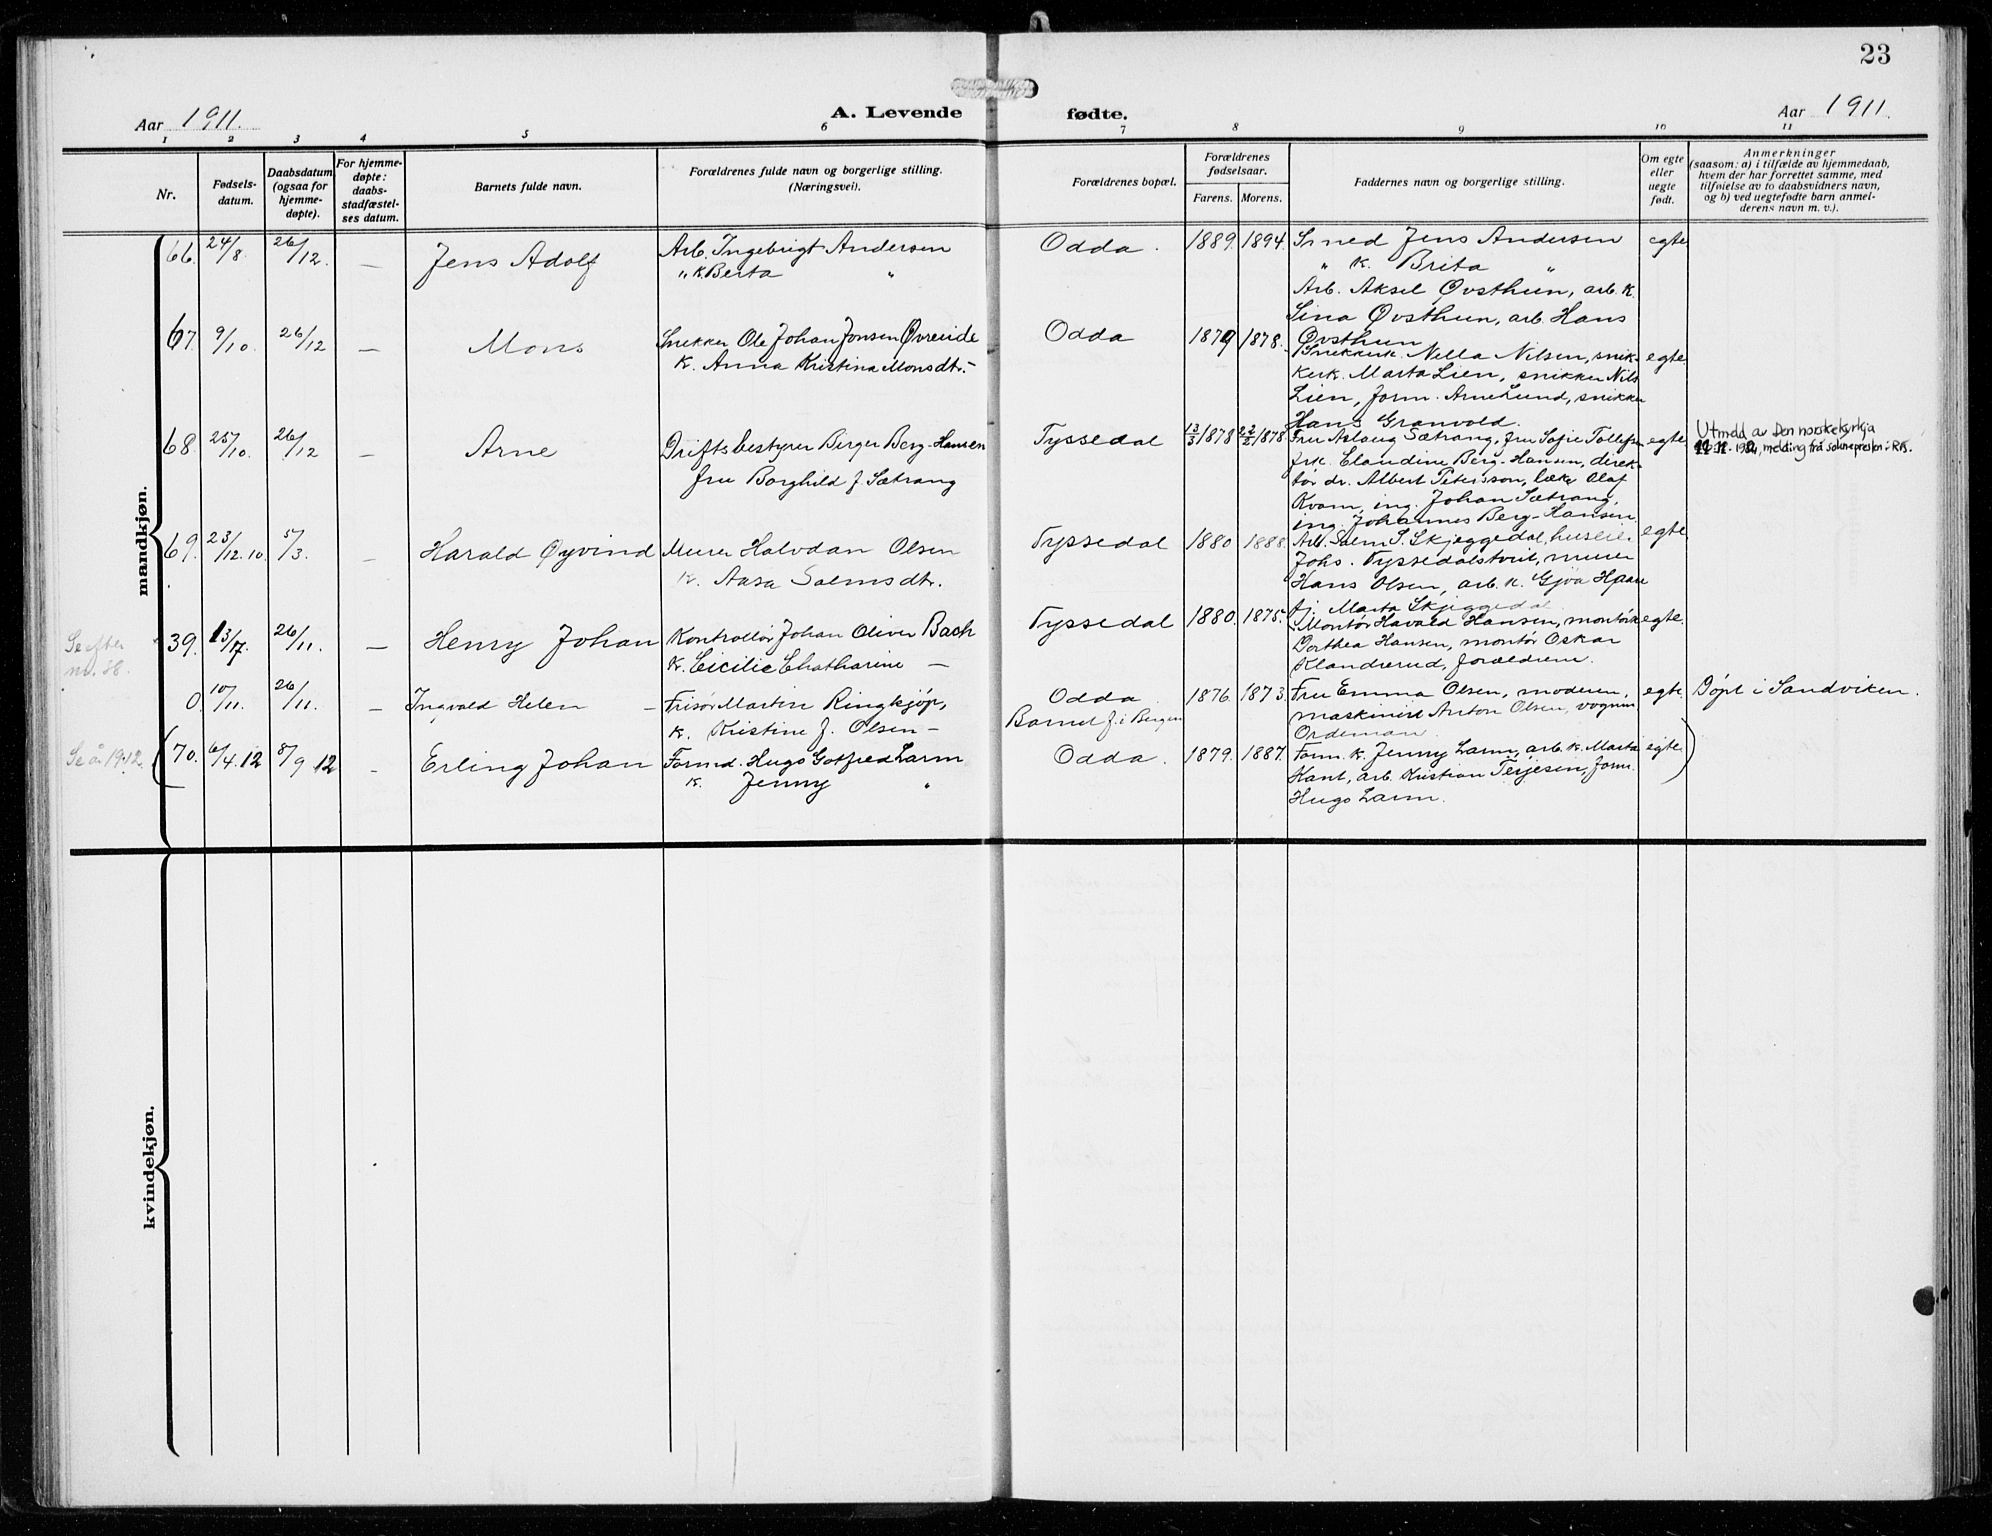 23
Aar 1911.
A. Levende
fødte.
Aar 1911.
1 2 3 4 5 6 7 8 9 10 11
Nr.
Fødsels-
datum.
Daabsdatum
(ogsaa for
hjemme-
døpte).
For hjemme-
døpte:
daabs-
stadfæstel-
ses datum.
Barnets fulde navn.
Forældrenes fulde navn og borgerlige stilling.
(Næringsvei).
Forældrenes bopæl.
Forældrenes
fødselsaar.
Farens. Morens.
Faddernes navn og borgerlige stilling.
Om egte
eller
uegte
født.
Anmerkninger
(saasom: a) i tilfælde av hjemmedaab,
hvem der har forrettet samme, med
tilføielse av to daabsvidners navn,
og b) ved uegtefødte barn anmel-
derens navn m. v.).
mandkjøn.
66. 24/8. 26/12. — Jens Adolf
Arb. Ingebrigt Andersen
" k. Berta "
Odda. 1889. 1894.
Smed Jens Andersen
" k. Brita "
Arb. Aksel Øvsthun, arb. k.
Sina Øvsthun, arb. Hans
Øvsthun
egte
67. 9/10. 26/12 — Mons
Snekker Ole Johan Jonsen Øvreide
k. Anna Kristina Monsdt. -
Odda 1879 1878.
Snekkerk. Nella Nilsen, snik-
kerk. Marta Lien, snikker Nils
Lien, form. Arne Lund, snikker
Hans Granvold.
egte.
68. 25/10. 26/12 — Arne
Driftsbestyrer Birger Berg-Hansen
fru Borghild f. Sætrang
Tyssedal 13/3 1878 2/2 1878.
Fru Aslaug Sætrang, fru Sofie Tollefsen
frk. Claudine Berg-Hansen, direk-
tør dr. Albert Petersson, læke Olaf
Kvam, ing. Johan Sætrang,
ing. Johannes Berg-Hansen.
egte
Utmeld av Den norske kyrkja
melding frå soknepresten i RB.
69. 23/12.10. 5/3. — Harald Øyvind
Murer Halvdan Olsen
k. Aasa Salmsdt.
Tyssedal 1880 1888.
Arb. Salm S. Skjeggedal, huseier
Johs. Tyssedalstveit, murer
Hans Olsen, arb. k. Gjøa Hpaau
tj. Marta Skjeggedal
egte
Se efter
nr. 38.
39. 13/7. 26/11. — Henry Johan
Kontrollør Johan Oliver Bach
k. Cicilie Chatharine —
Tyssedal 1880. 1875.
Montør Havald Hansen, montørk
Dorthea Hansen, montør Oskar
Klandrerud, forældrene.
egte.
0. 10/11. 26/11. — Ingvald Helen
Frisør Martin Ringkjøp,
k. Kristine f. Olsen —
Odda
Barnet f. i Bergen
1876. 1873.
Fru Emma Olsen, moderen,
maskinist Anton Olsen, vognm
Ordeman.
egte.
Døpt i Sandviken.
Se år 1912.
(70. 6/4.12 8/9 12 — Erling Johan
Formd. Hugo Gotfred Larm
k. Jenny "
Odda. 1879. 1887.
Form. k. Jenny Larm, arb. k. Marta
Kant, arb. Kristian Terjesen, form.
Hugo Larm.
egte)
kvindekjøn.